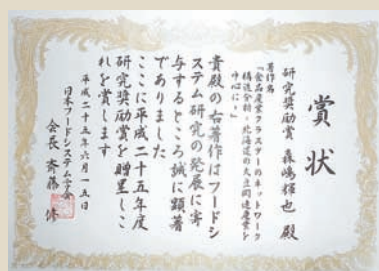 賞状
研究奨励賞 森嶋輝也 殿
著作名
『食品産業クラスターのネットワーク
構造分析－北海道の大豆関連産業を
中心に－』
貴殿の右著作はフードシ
ステム研究の発展に寄
与するところ誠に顕著
でありました
ここに平成二十五年度
研究奨励賞を贈呈しこ
れを賞します
平成二十五年六月一五日
日本フードシステム学会
会長 斉藤 修